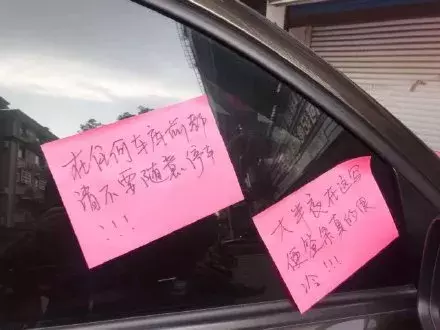 在任何车库前都
请不要随意停车
!!!
大半夜在这写
便笺条真的很
冷!!!